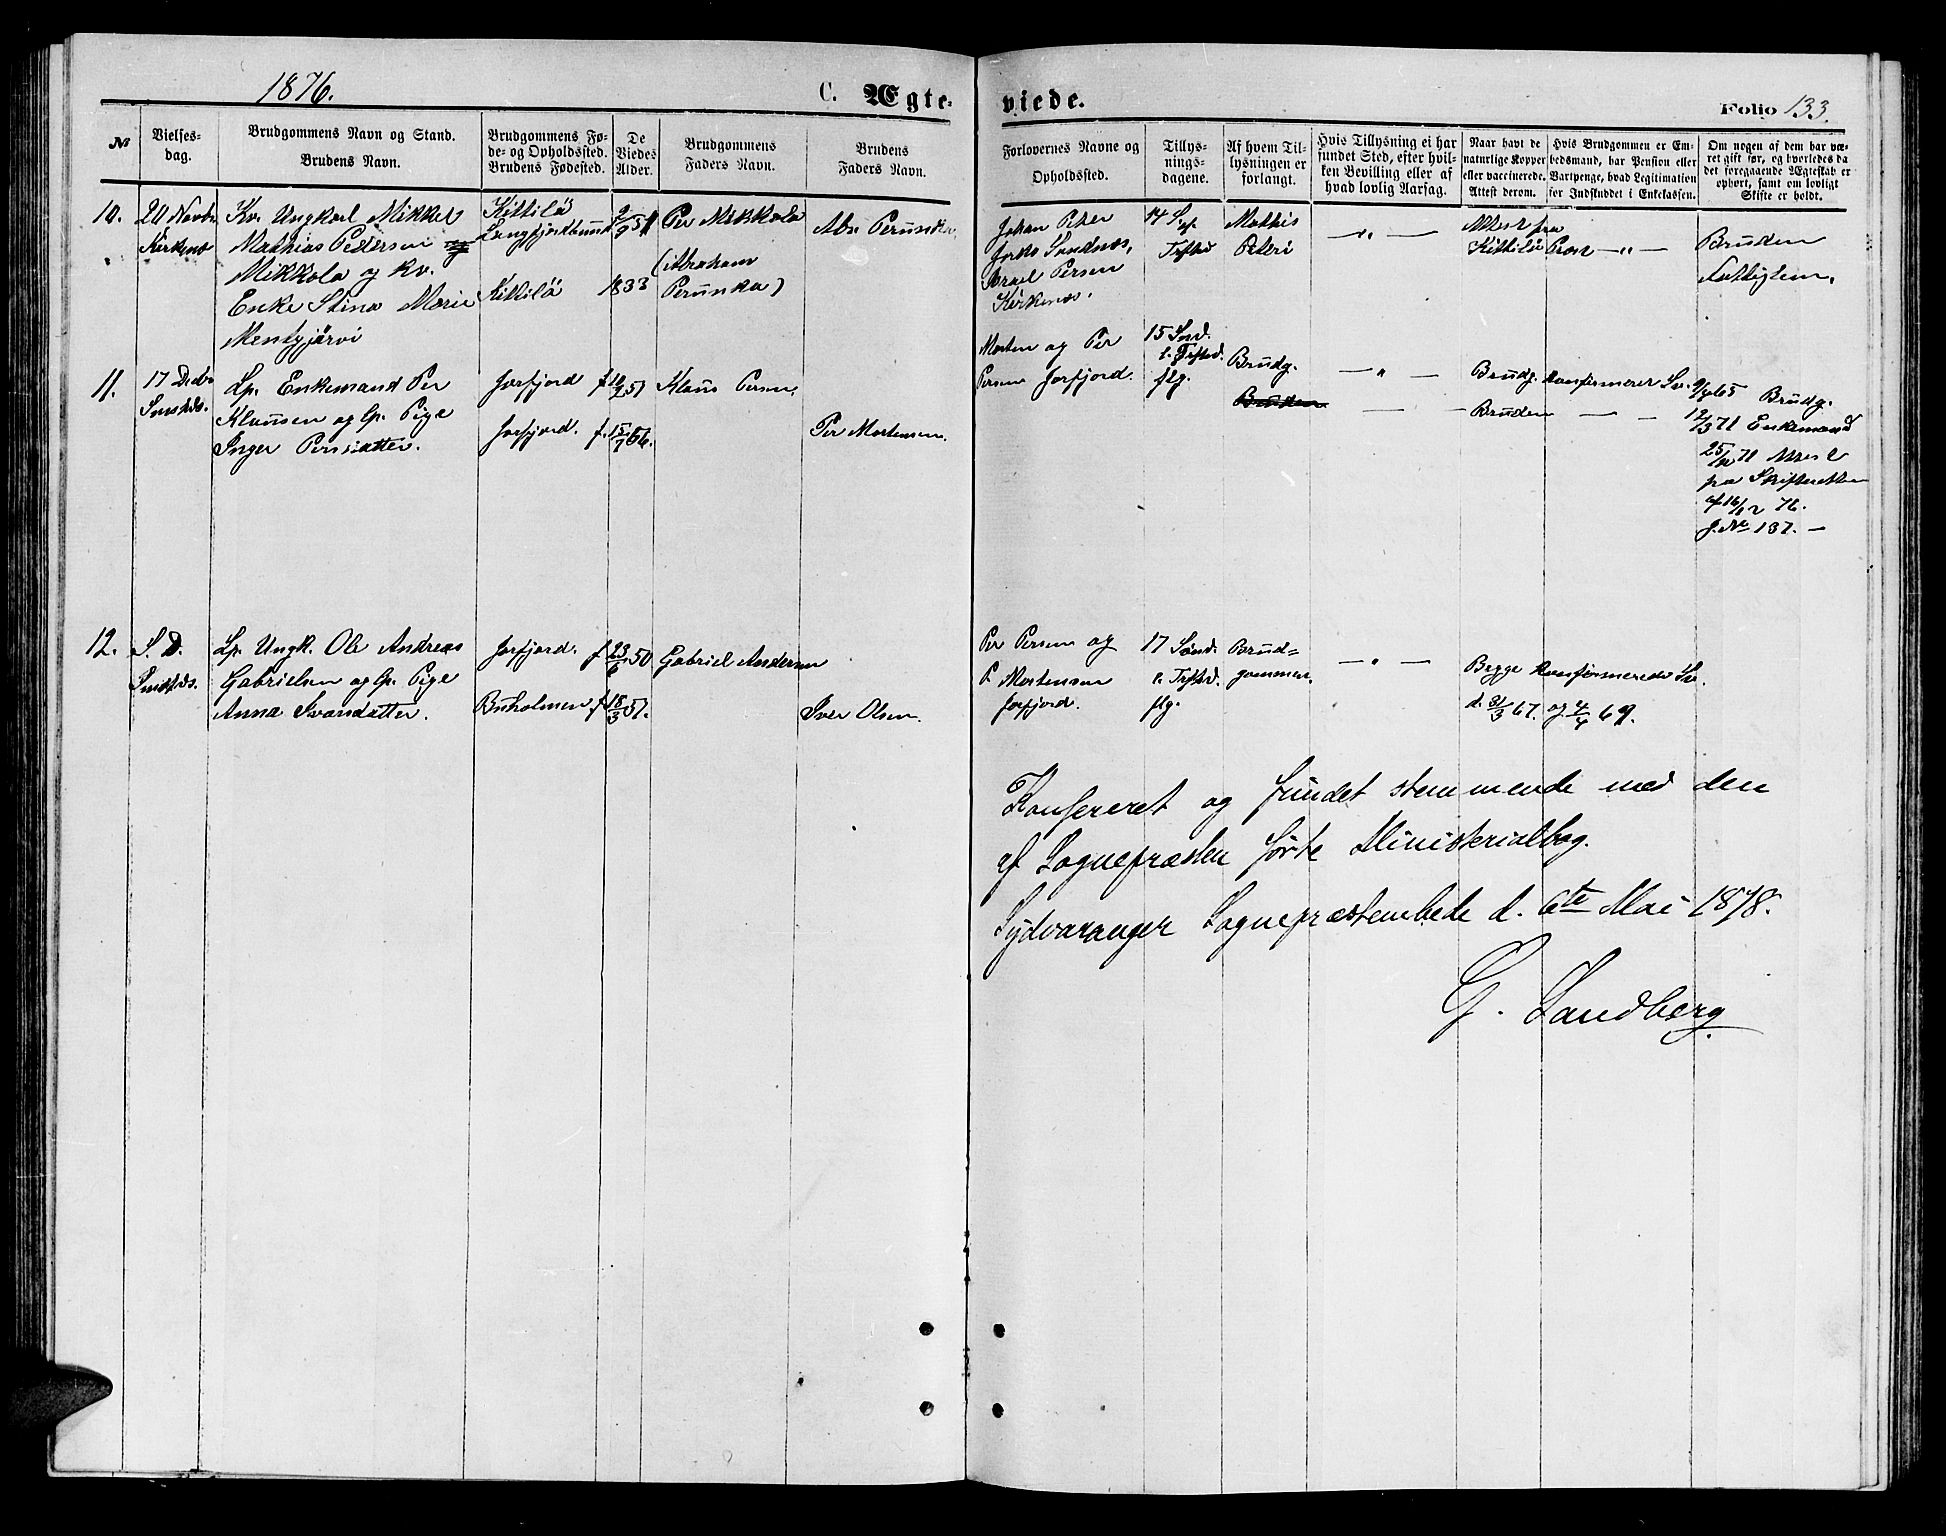 1876.
C. Ægte-
viede.
Folio 133.
№
Vielses-
dag.
Brudgommens Navn og Stand.
Brudens Navn.
Brudgommens Fø-
de- og Opholdssted.
Brudens Fødested.
De
Viedes
Alder.
Brudgommens
Faders Navn.
Brudens
Faders Navn.
Forlovernes Navne og
Opholdssted.
Tillys-
nings-
dagene.
Af hvem Til-
lysningen er
forlangt.
Hvis Tillysning ei har
fundet Sted, efter hvil-
ken Bevilling eller af
hvad lovlig Aarsag.
Naar havt de
naturlige Kopper
eller vaccinerede.
Attest derom.
Hvis Brudgommen er Em-
bedsmand, har Pension eller
Vartpenge, hvad Legitimation
for Indskuddet i Enkekassen.
Om nogen af dem har væ-
ret gift før, og hvorledes da
det foregaaende Ægteskab er
ophørt, samt om lovligt
Skifte er holdt.
10.
20 Novbr
Kirkenæs
Kv. Ungkarl Mikkel
Mathias Pedersen
Mikkola og Kv.
Enke Stina Marie
Mentyjärvi
Kittilä
Langfjordbund
Kittilä
2/9 51
1833
Per Mikkola
(Abraham
Perunka)
Abr. Perunka
Johan Peter
Sandnæs,
Israel Persen
Kirkenæs.
14
Trftd
Mathis
Peteri
— " —
Attest fra
Kittilä Præst — " —
Bruden
11.
17 Decbr
Lp. Enkemand Per
Klausen og lp. Pige
Inger Persdatter.
Jarfjord
Jarfjord.
51
f. 15/7 56.
Klaus Persen.
Per Mortensen.
Morten og Per
Persen Jarfjord.
15 Snd.
e. Trftd.
flg.
Brudg.
Bruden
— " —
— —
Brudg. konfirmeret
Bruden — —
65 Brudg.
71 Enkemand
71 Attest
fra Skifteretten
af 16/12 76.
J.№ 137. —
12.
S. D.
Lp. Ungk. Ole Andreas
Gabrielsen og lp. Pige
Anna Ivarsdatter.
Jarfjord.
Buholmen
f 23/6 50
f 18/3 51.
Gabriel Andersen
Iver Olsen.
Per Persen og
P. Mortensen
Jarfjord.
17 Sønd.
e. Trftd.
flg.
Brud=
gommen.
— " —
Begge konfirmerede
d. 31/3 67. og 4/4 69.
Konfereret og fundet stemmende med den
af Sognepræsten førte Ministerialbog.
Sydvaranger Sognepræstembede d. 6te Mai 1878.
G. Sandberg